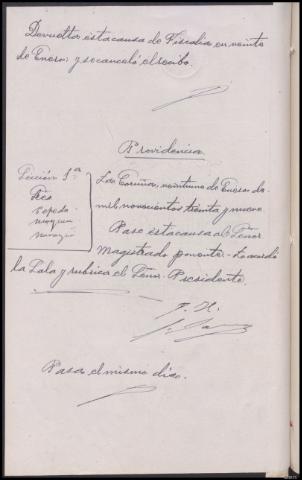 Devuelta esta causa de Fiscalia en veinte
de Enero; y se canceló el recibo.
Providencia
Sección 1ª
Tres
Cepeda
La Coruña, veintiuno de Enero de
mil novecientos treinta y nueve
Pase esta causa al Señor
Magistrado ponente. Lo acordó
la Sala y rubrica el Señor Presidente.
Pasa el mismo dia.